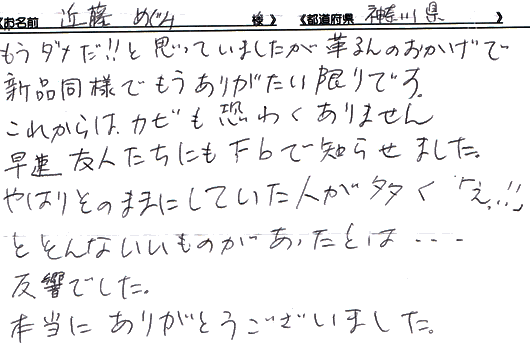 《お名前 近藤 めぐみ 様》《都道府県 神奈川県 》
もうダメだ!!と思っていましたが革るんのおかげで
新品同様でもうありがたい限りです。
これからは、カビも恐わくありません
早速 友人たちにもFbで知らせました。
やはりそのままにしていた人が多く「え,!!」
とそんないいものがあったとは・・・
反響でした。
本当にありがとうございました。